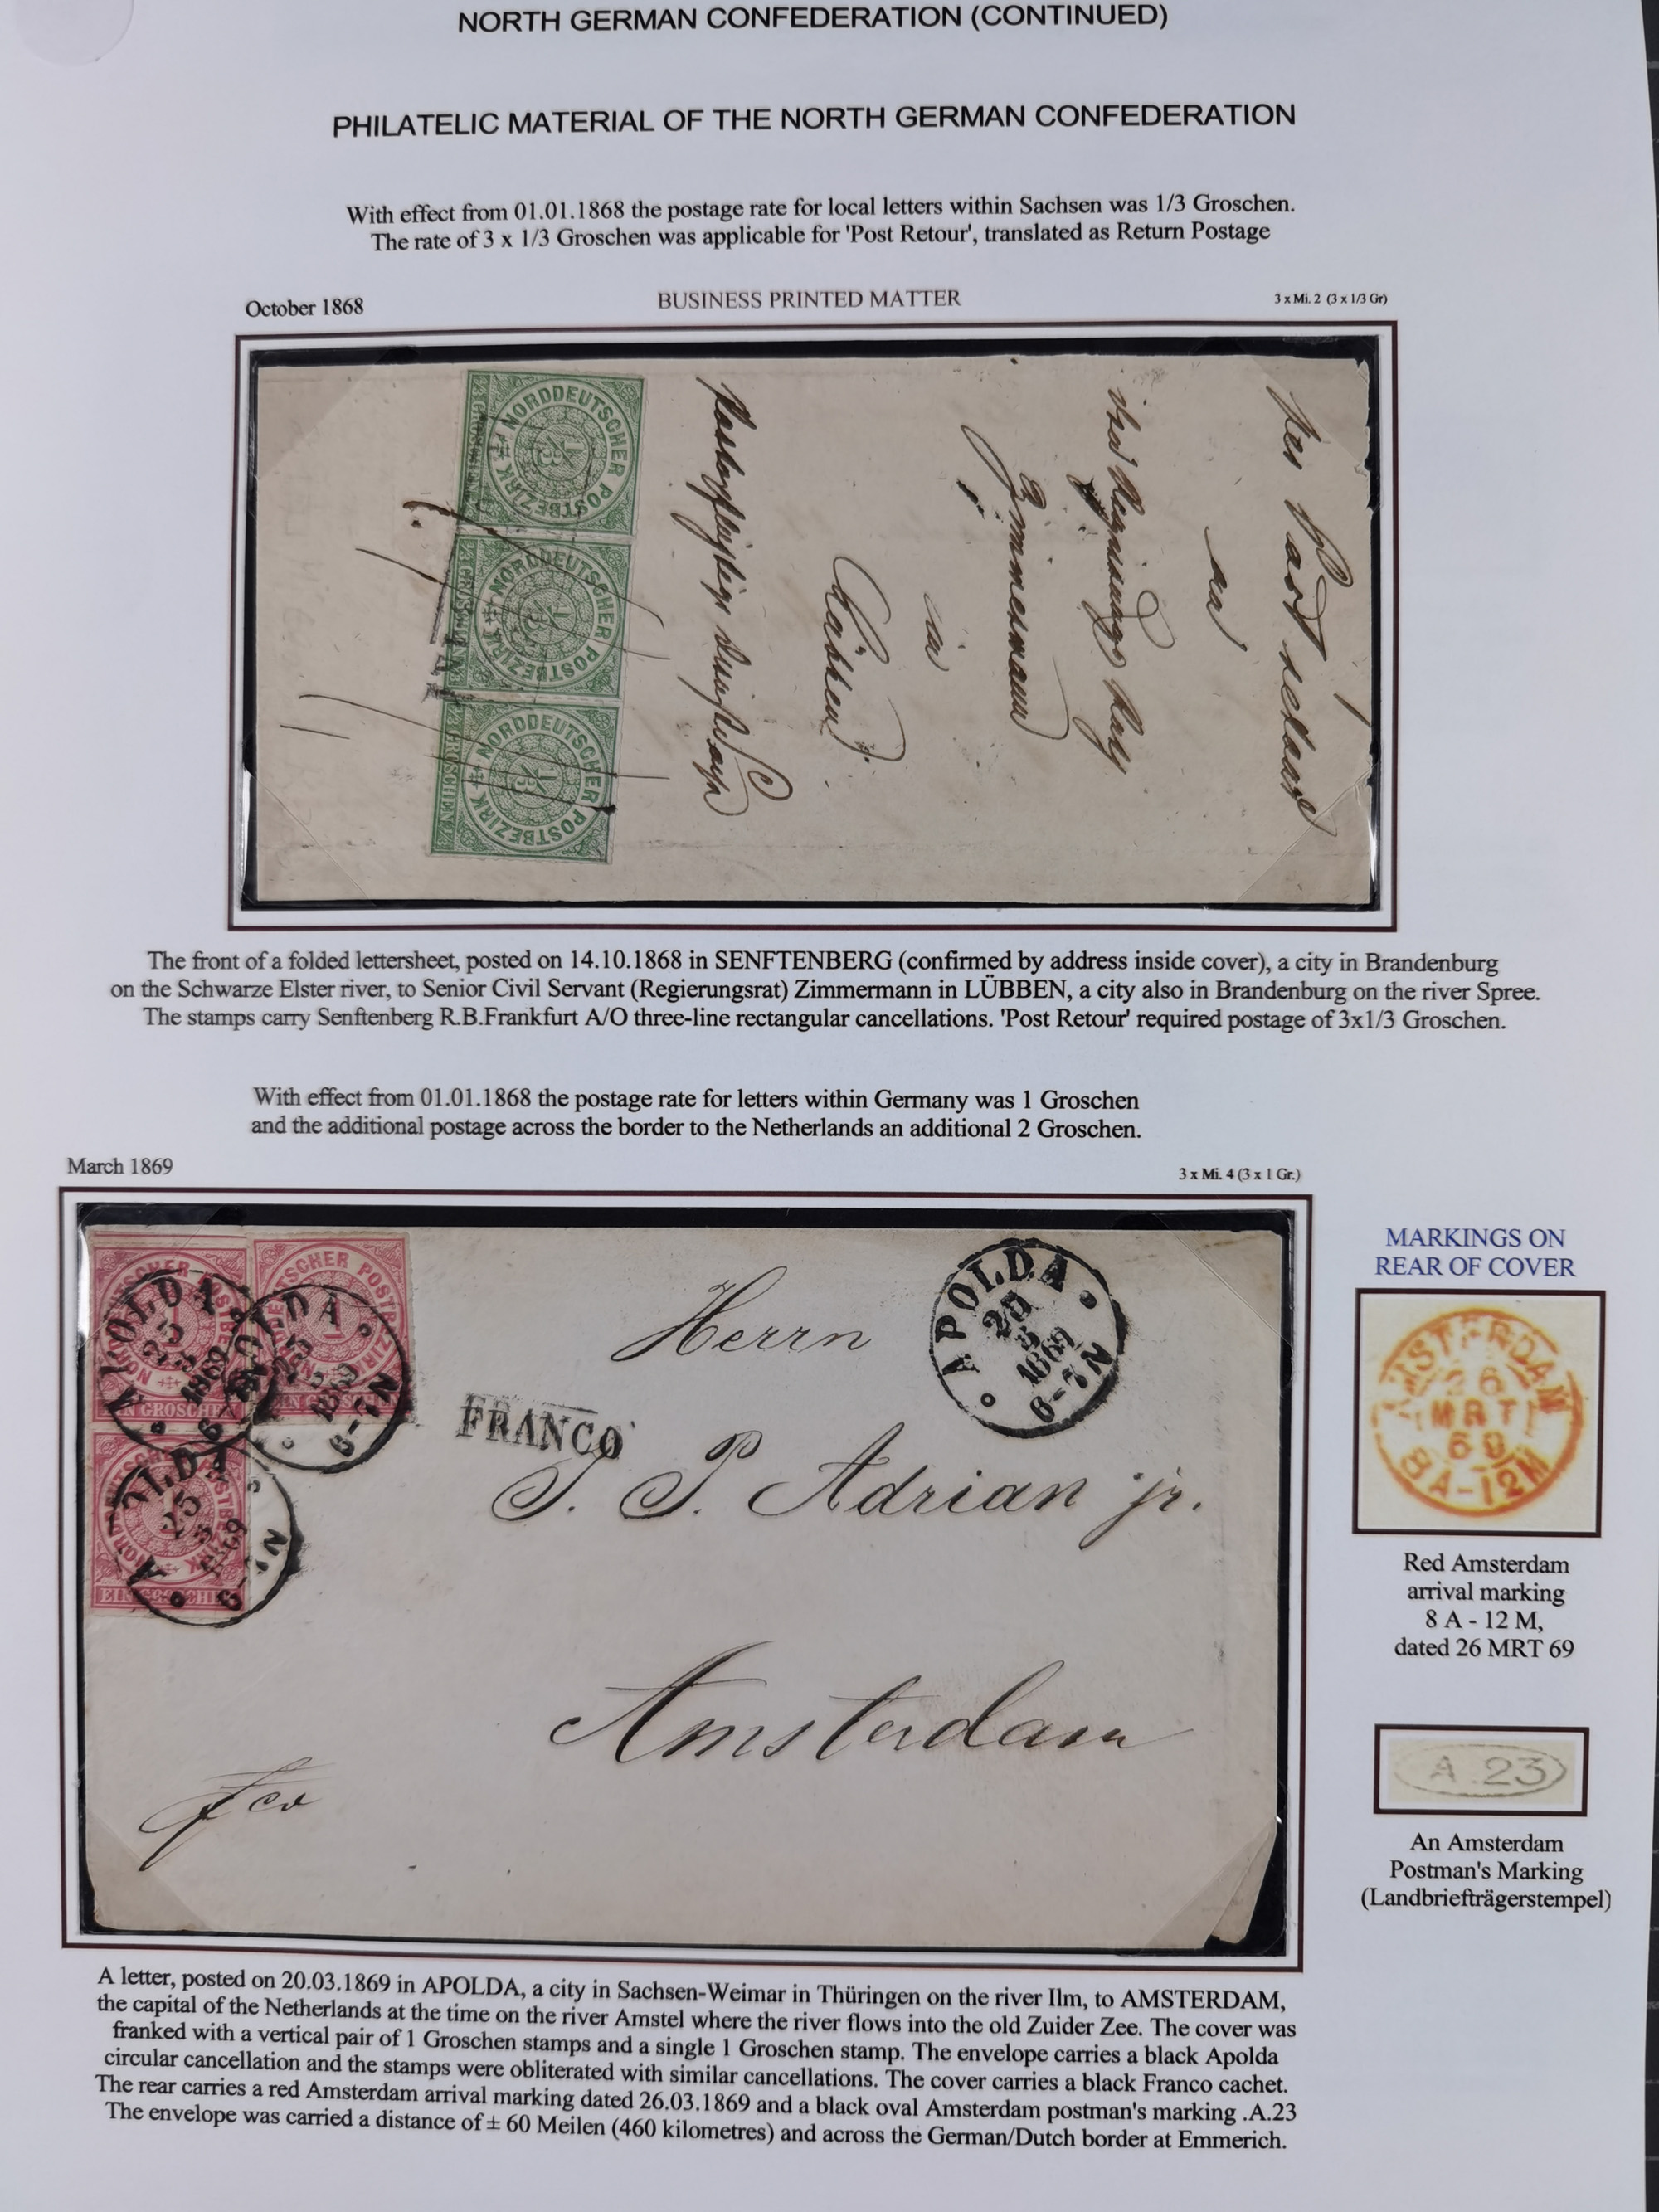 NORTH GERMAN CONFEDERATION (CONTINUED)
PHILATELIC MATERIAL OF THE NORTH GERMAN CONFEDERATION
With effect from 01.01.1868 the postage rate for local letters within Sachsen was 1/3 Groschen.
The rate of 3 x 1/3 Groschen was applicable for 'Post Retour', translated as Return Postage
October 1868
BUSINESS PRINTED MATTER
3 x Mi. 2 (3 x 1/3 Gr)
Zimmermann
in
Lübben
NORDDEUTSCHER POSTBEZIRK
1/3
1/3 GROSCHEN 1/3
NORDDEUTSCHER POSTBEZIRK
1/3
1/3 GROSCHEN 1/3
NORDDEUTSCHER POSTBEZIRK
1/3
1/3 GROSCHEN 1/3
The front of a folded lettersheet, posted on 14.10.1868 in SENFTENBERG (confirmed by address inside cover), a city in Brandenburg
on the Schwarze Elster river, to Senior Civil Servant (Regierungsrat) Zimmermann in LÜBBEN, a city also in Brandenburg on the river Spree.
The stamps carry Senftenberg R.B.Frankfurt A/O three-line rectangular cancellations. 'Post Retour' required postage of 3x1/3 Groschen.
With effect from 01.01.1868 the postage rate for letters within Germany was 1 Groschen
and the additional postage across the border to the Netherlands an additional 2 Groschen.
March 1869
3 x Mi. 4 (3 x 1 Gr.)
APOLDA
25
3
1869
6-7N
APOLDA
3
1869
6-7N
FRANCO
Herrn
J. P. Adrian jr.
Amsterdam
fco
MARKINGS ON
REAR OF COVER
AMSTERDAM
26
MRT
69
8A-12M
Red Amsterdam
arrival marking
8 A - 12 M,
dated 26 MRT 69
A.23
An Amsterdam
Postman's Marking
(Landbriefträgerstempel)
A letter, posted on 20.03.1869 in APOLDA, a city in Sachsen-Weimar in Thüringen on the river Ilm, to AMSTERDAM,
the capital of the Netherlands at the time on the river Amstel where the river flows into the old Zuider Zee. The cover was
franked with a vertical pair of 1 Groschen stamps and a single 1 Groschen stamp. The envelope carries a black Apolda
circular cancellation and the stamps were obliterated with similar cancellations. The cover carries a black Franco cachet.
The rear carries a red Amsterdam arrival marking dated 26.03.1869 and a black oval Amsterdam postman's marking .A.23
The envelope was carried a distance of ± 60 Meilen (460 kilometres) and across the German/Dutch border at Emmerich.